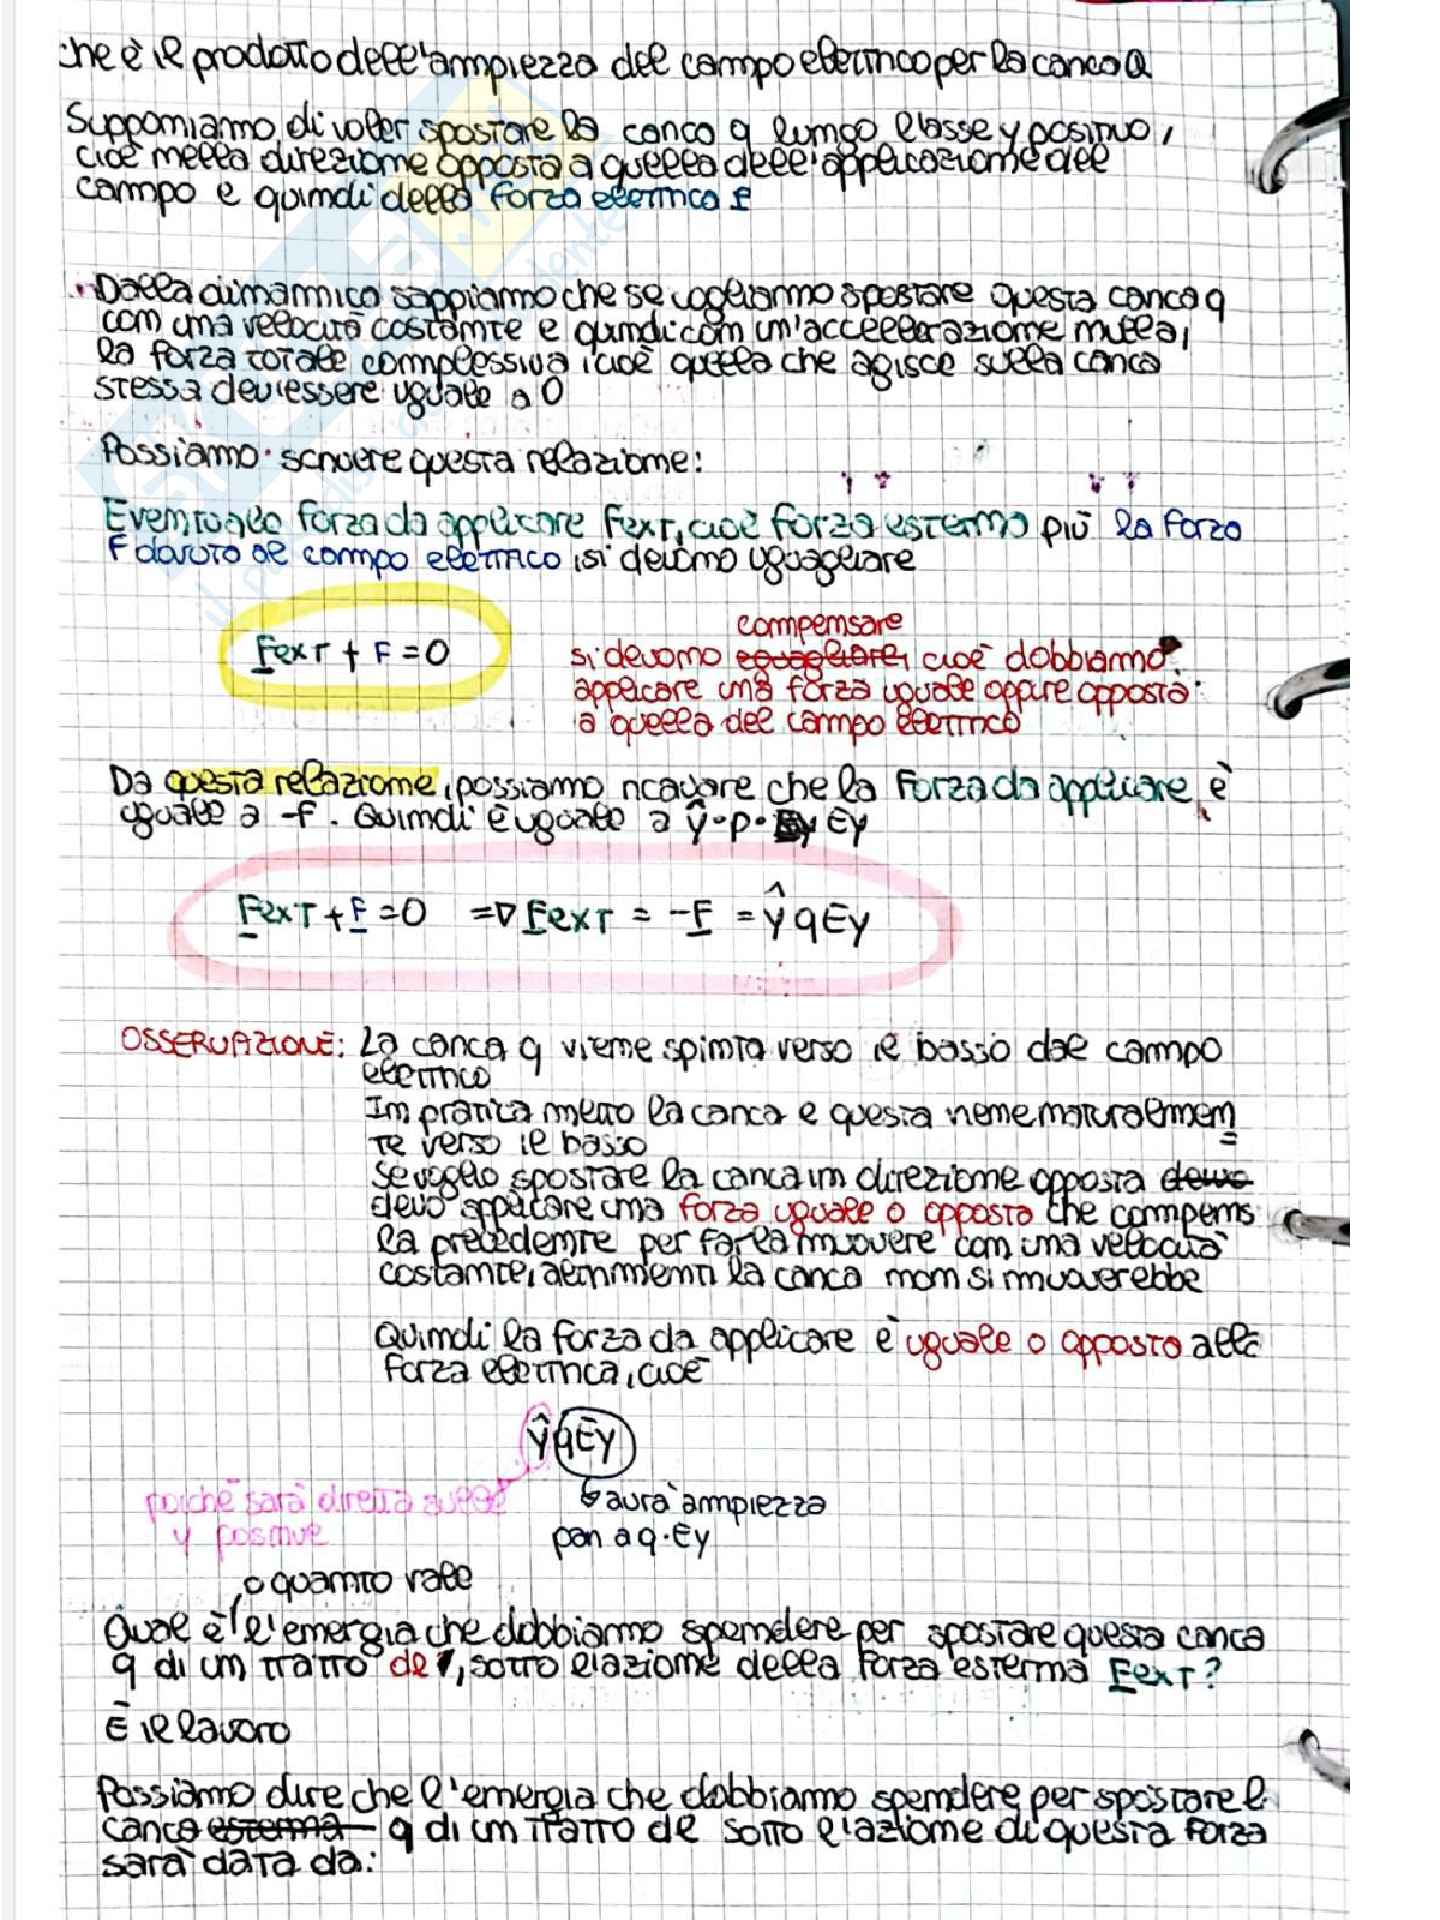 che è il prodotto dell'ampiezza del campo elettrico per la carica Q
Supponiamo di voler spostare la carica q lungo l'asse y positivo,
cioè nella direzione opposta a quella dell'applicazione del
campo e quindi della forza elettrica F
Dalla dinamica sappiamo che se vogliamo spostare questa carica q
con una velocità costante e quindi con un'accellerazione nulla,
la forza totale complessiva, cioè quella che agisce sulla carica
stessa dev'essere uguale a 0
Possiamo scrivere questa relazione:
Eventuale forza da applicare Fext, cioè forza esterna più la forza
F dovuta al campo elettrico, si devono uguagliare
Fext + F = 0
compensare
si devono eguagliare, cioè dobbiamo
applicare una forza uguale oppure opposta
a quella del campo elettrico
Da questa relazione, possiamo ricavare che la forza da applicare è
uguale a -F. Quindi è uguale a ŷ·p· Ey
Fext + F = 0 => Fext = -F = ŷqEy
OSSERVAZIONE: La carica q viene spinta verso il basso dal campo
elettrico
In pratica metto la carica e questa viene naturalmen
te verso il basso
Se voglio spostare la carica in direzione opposta devo
devo applicare una forza uguale o opposta che compens
la precedente per farla muovere con una velocità
costante, altrimenti la carica non si muoverebbe
Quindi la forza da applicare è uguale o opposto alla
forza elettrica, cioè
ŷqEy
poiché sarà diretta sulle
y positive
avrà ampiezza
pari a q·Ey
o quanto vale
Qual è l'energia che dobbiamo spendere per spostare questa carica
q di un tratto dl, sotto l'azione della forza esterna Fext?
È il lavoro
Possiamo dire che l'energia che dobbiamo spendere per spostare l
carica esterna q di un tratto dl sotto l'azione di questa forza
sarà data da: